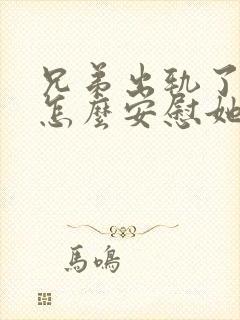 兄弟出轨了
怎麼安慰她
馬鳴